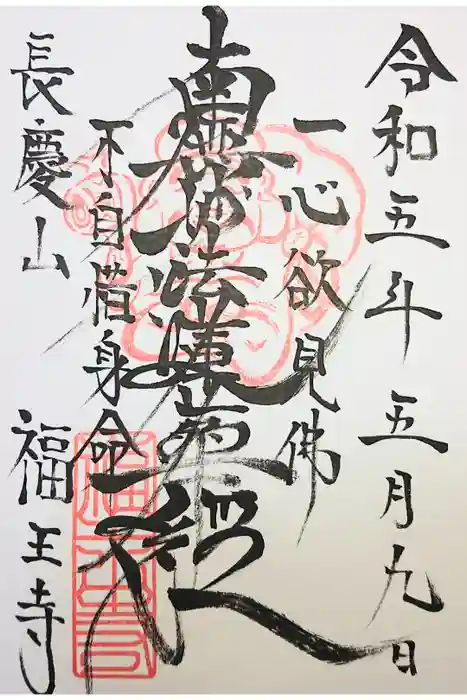 令和五年五月九日
一心欲見佛
南無妙法蓮華経
不自惜身命
長慶山 福王寺
福王寺